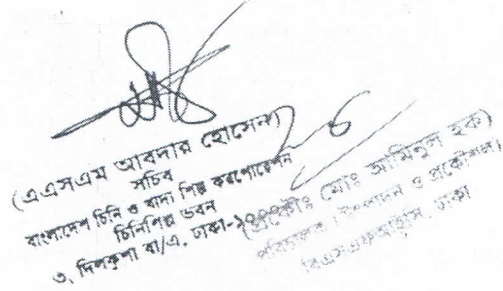 (এএসএম আবদার হোসেন)
সচিব
বাংলাদেশ চিনি ও খাদ্য শিল্প করপোরেশন
চিনিশিল্প ভবন
৩, দিলকুশা বা/এ, ঢাকা-১০০০
(প্রকৌঃ মোঃ আমিনুল হক)
পরিচালক (উৎপাদন ও প্রকৌশল)
বিএসএফআইসি, ঢাকা